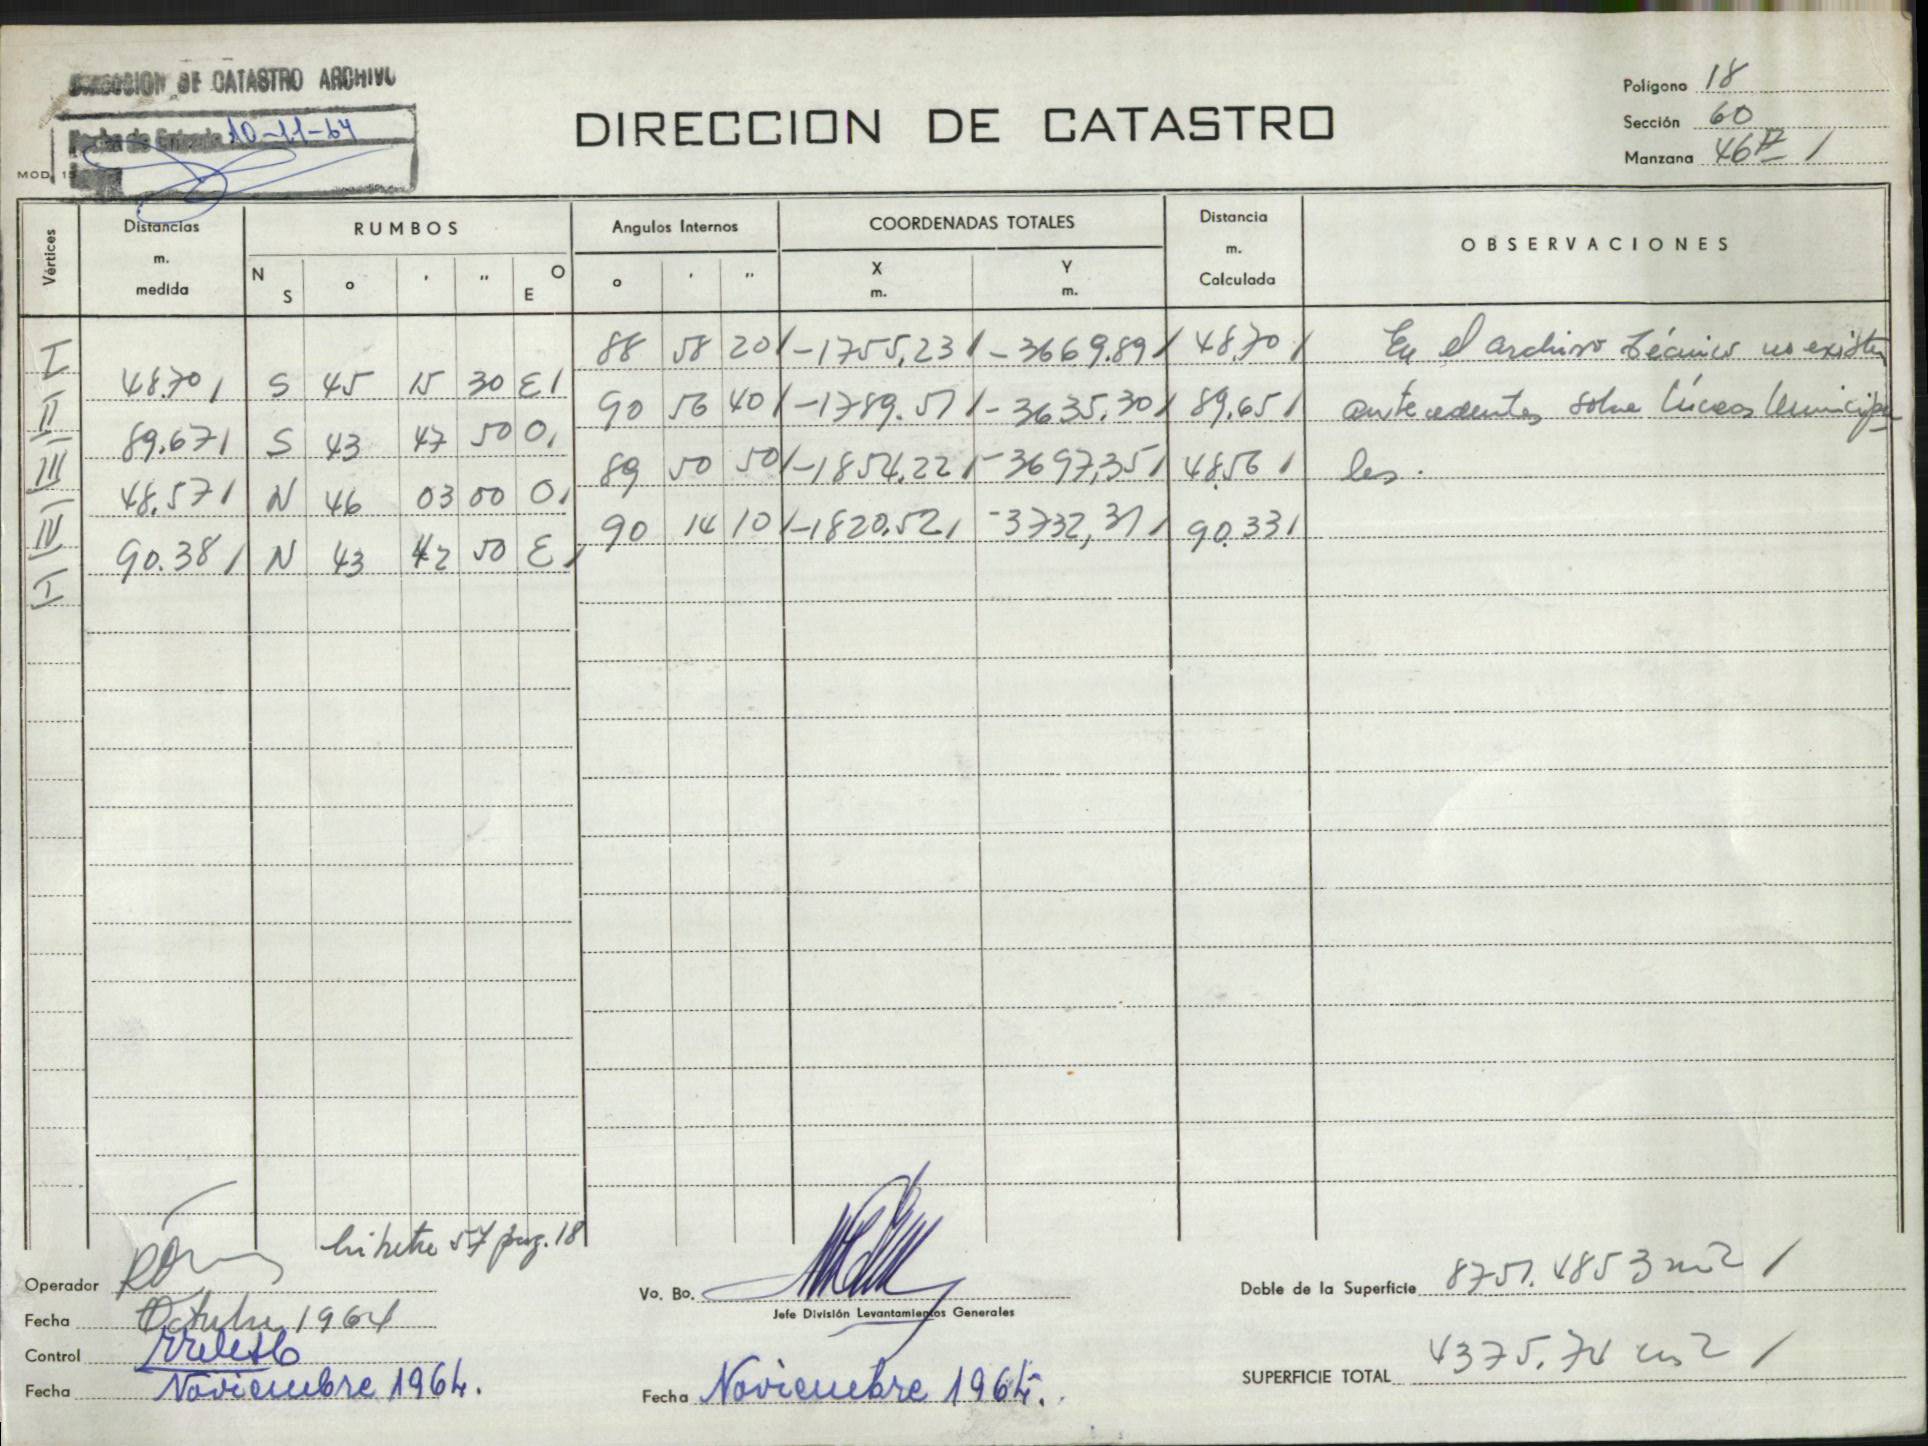 DIRECCION DE CATASTRO ARCHIVO
Fecha de Entrada 10-11-64
MOD. 15
DIRECCION DE CATASTRO
Polígono 18
Sección 60
Manzana 46A /
Vértices
Distancias m. medida
RUMBOS
N S o ' " O E
Angulos Internos
o ' "
COORDENADAS TOTALES
X m.
Y m.
Distancia m. Calculada
OBSERVACIONES
I 88 58 20 / -1755,23 / -3669.89 / 48.70 / En el archivo técnico no existen
48.70 / S 45 15 30 E /
II 90 56 40 / -1789.51 / -3635.30 / 89.65 / antecedentes sobre líneas Municipa
89.67 / S 43 47 50 O /
III 89 50 50 / -1854.22 / -3697,35 / 48.56 / les.
48.57 / N 46 03 00 O /
IV 90 14 10 / -1820.52 / -3732,31 / 90.33 /
90.38 / N 43 42 50 E /
I
libreta 57 pag. 18
Operador
Fecha Octubre 1964
Control
Fecha Noviembre 1964.
Vo. Bo.
Jefe División Levantamientos Generales
Fecha Noviembre 1964.
Doble de la Superficie 8751.4853 m2 /
SUPERFICIE TOTAL 4375.74 m2 /